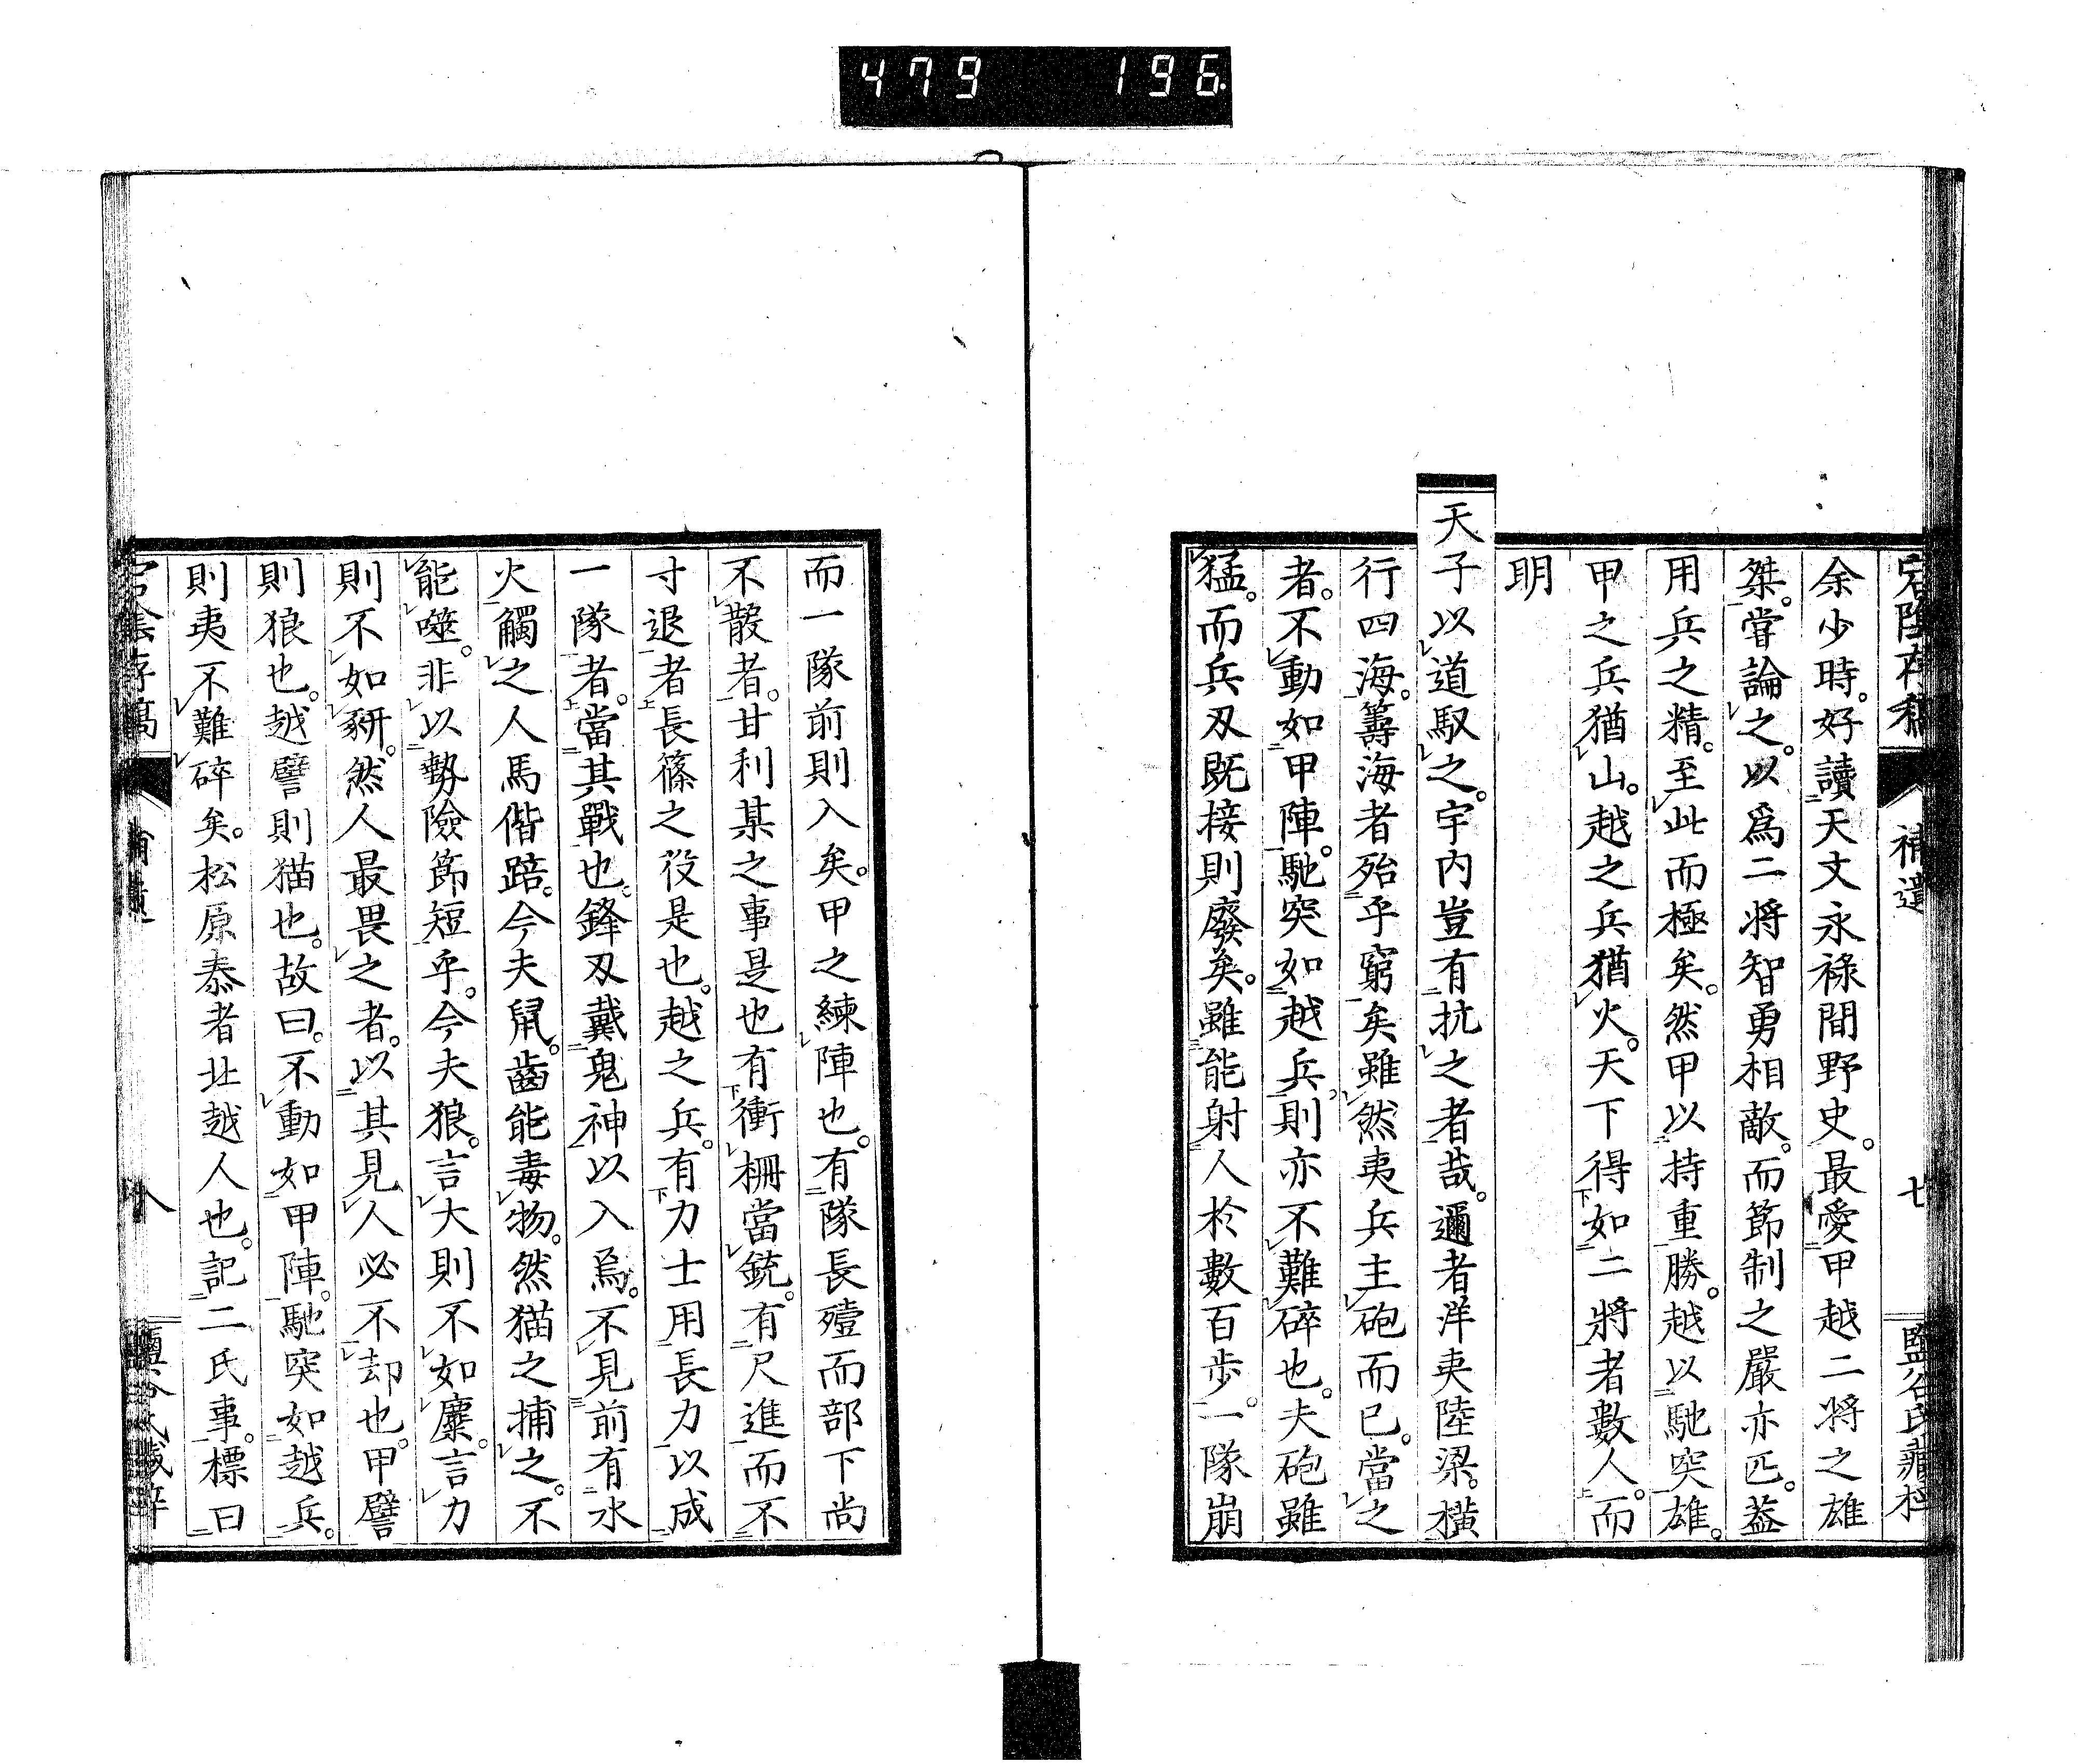 479 196
宕陰存稿 補遺 七 鹽谷氏藏梓
余少時。好讀天文永祿間野史。最愛甲越二將之雄
桀。嘗論之。以爲二將智勇相敵。而節制之嚴亦匹。蓋
用兵之精。至此而極矣。然甲以持重勝。越以馳突雄。
甲之兵猶山。越之兵猶火。天下得如二將者數人。而
明
天子以道馭之。宇内豈有抗之者哉。邇者洋夷陸梁。橫
行四海。籌海者殆乎窮矣雖然夷兵主砲而已。當之
者。不動如甲陣。馳突如越兵。則亦不難碎也。夫砲雖
猛。而兵刄既接則廢矣。雖能射人於數百步。一隊崩
而一隊前則入矣。甲之練陣也。有隊長殪而部下尚
不散者。甘利某之事是也有衝柵當銃。有尺進而不
寸退者長篠之役是也。越之兵。有力士用長力以成
一隊者。當其戰也。鋒刄戴鬼神以入焉。不見前有水
火觸之人馬偕踣。今夫鼠。齒能毒物。然猫之捕之。不
能噬。非以勢險節短乎。今夫狼。言大則不如麋。言力
則不如豣。然人最畏之者。以其見人必不却也。甲譬
則狼也。越譬則猫也。故曰。不動如甲陣。馳突如越兵。
則夷不難碎矣。松原泰者北越人也。記二氏事。標曰
宕陰存稿 補遺 八 鹽谷氏藏梓